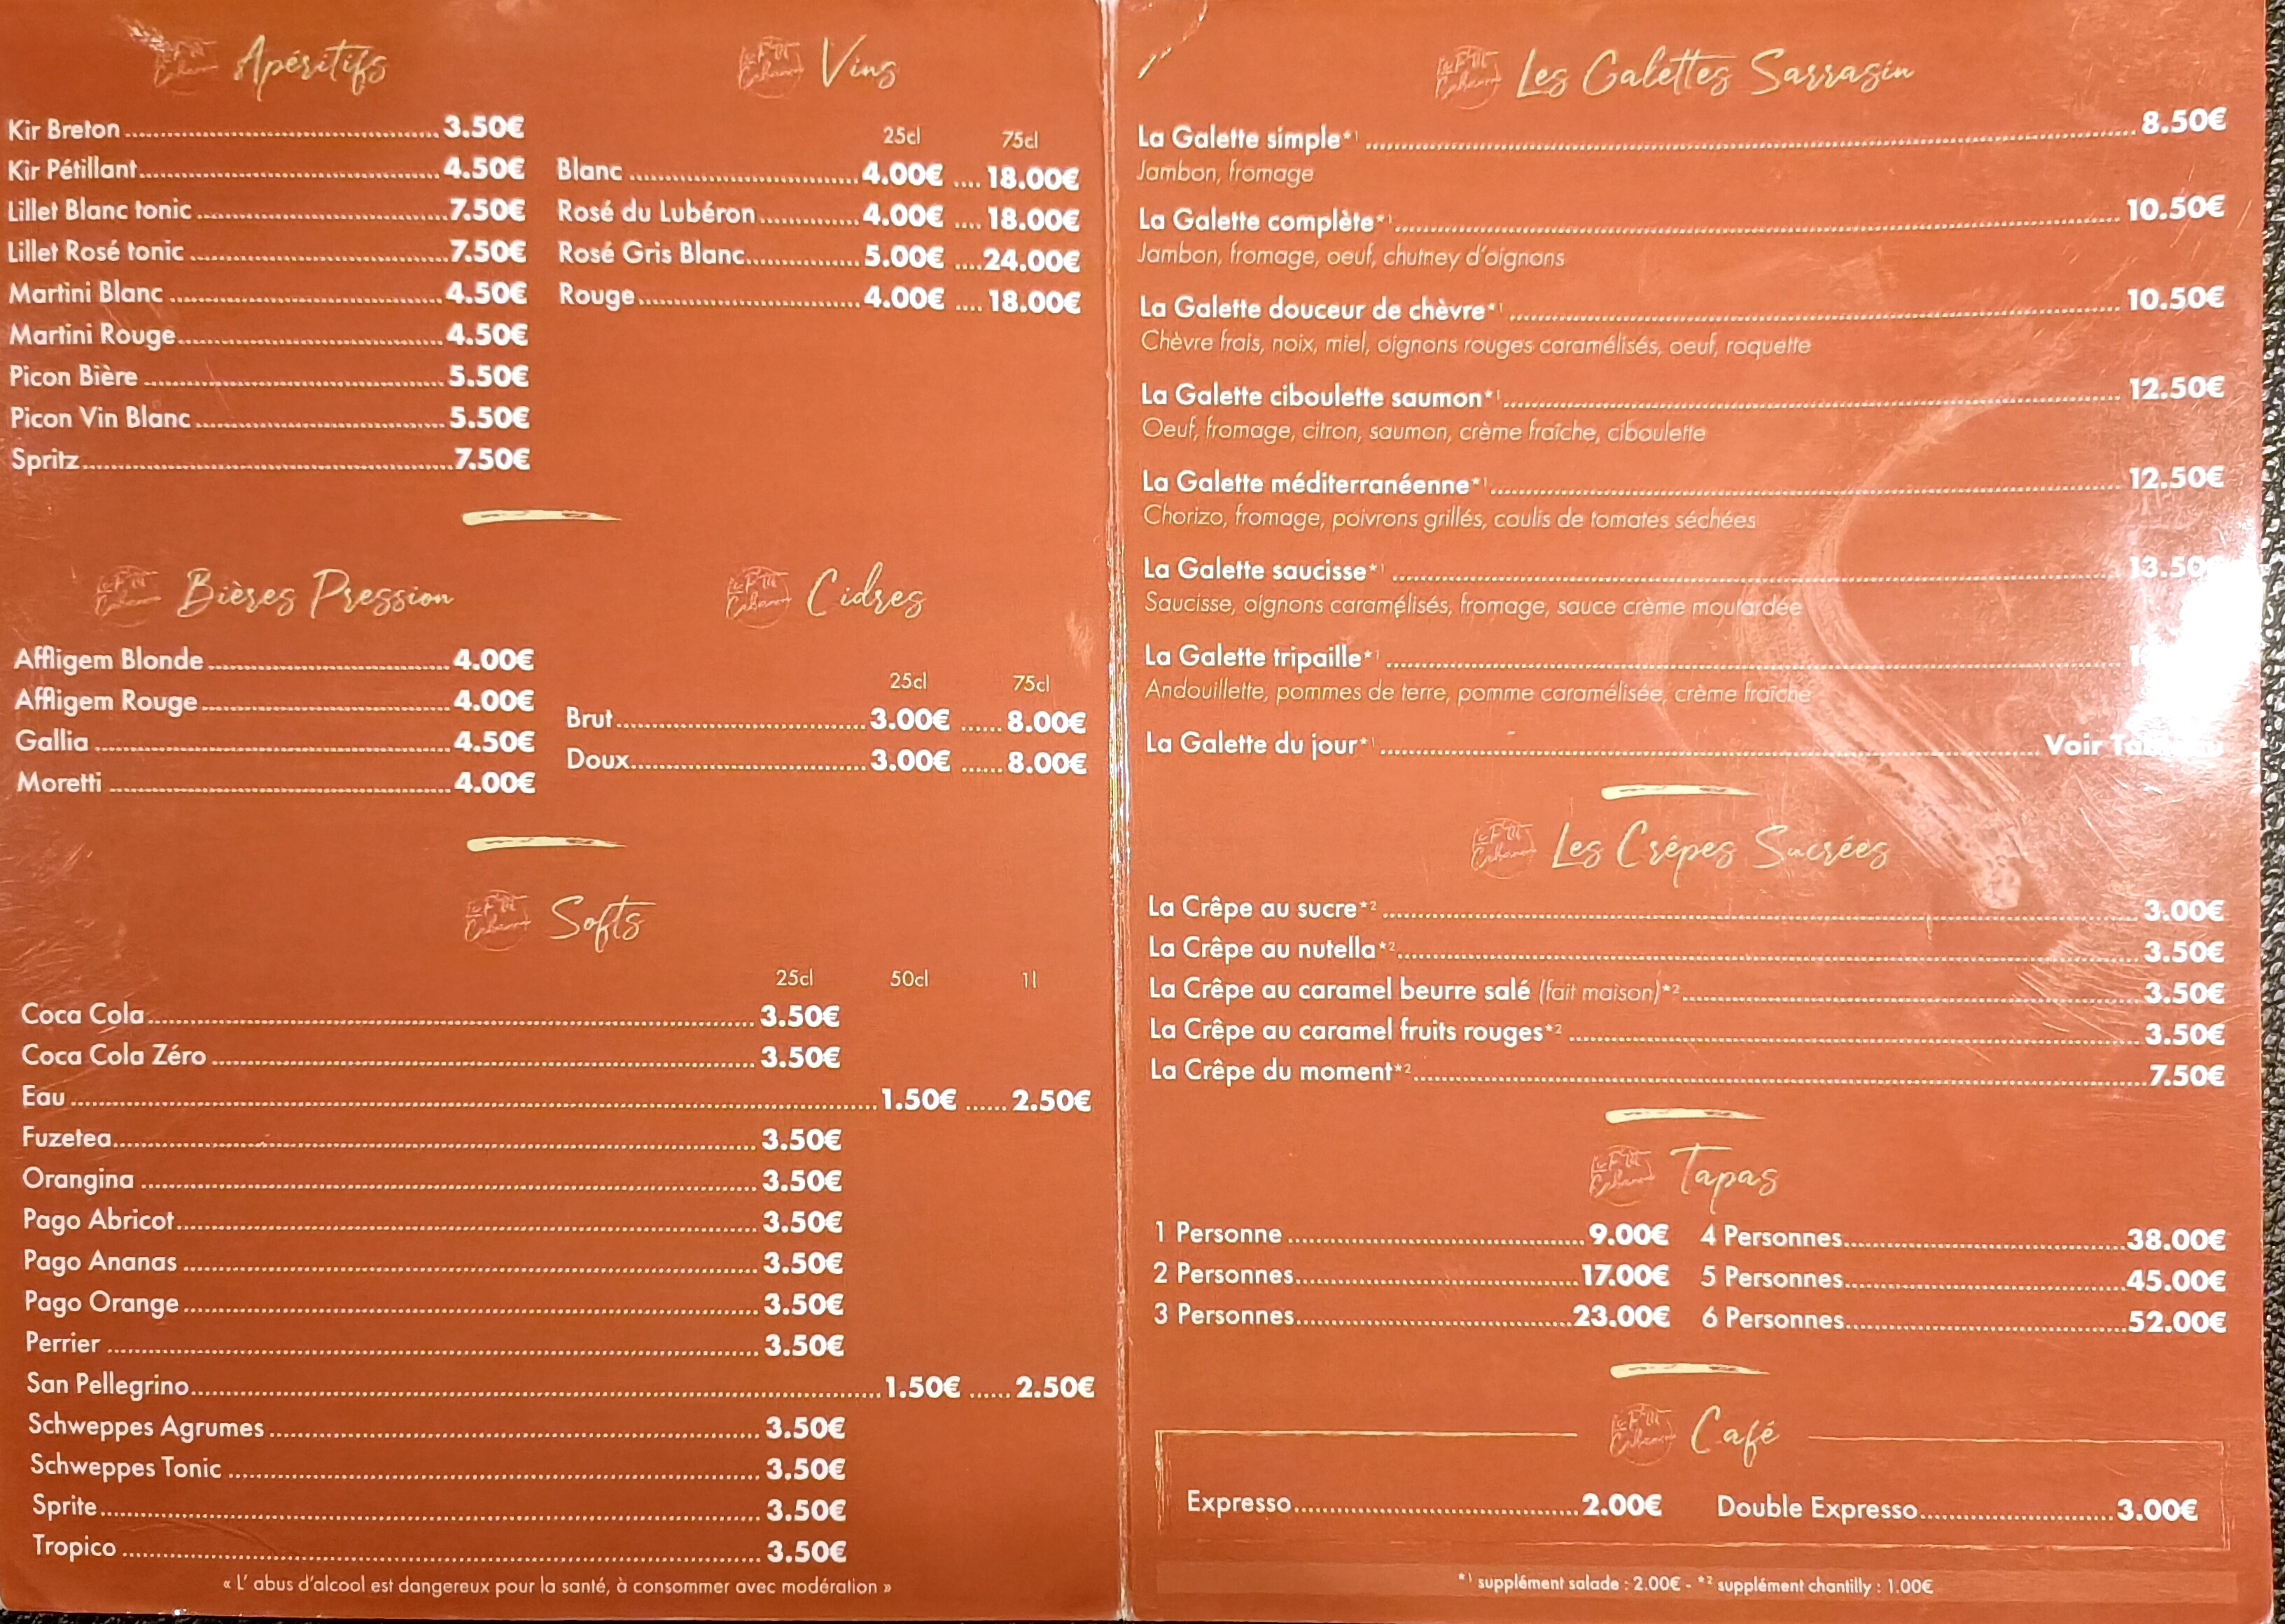 Apéritifs
Kir Breton 3.50€
Kir Pétillant 4.50€
Lillet Blanc tonic 7.50€
Lillet Rosé tonic 7.50€
Martini Blanc 4.50€
Martini Rouge 4.50€
Picon Bière 5.50€
Picon Vin Blanc 5.50€
Spritz 7.50€
Vins
25cl 75cl
Blanc 4.00€ 18.00€
Rosé du Lubéron 4.00€ 18.00€
Rosé Gris Blanc 5.00€ 24.00€
Rouge 4.00€ 18.00€
Bières Pression
Affligem Blonde 4.00€
Affligem Rouge 4.00€
Gallia 4.50€
Moretti 4.00€
Cidres
25cl 75cl
Brut 3.00€ 8.00€
Doux 3.00€ 8.00€
Softs
25cl 50cl 1l
Coca Cola 3.50€
Coca Cola Zéro 3.50€
Eau 1.50€ 2.50€
Fuzetea 3.50€
Orangina 3.50€
Pago Abricot 3.50€
Pago Ananas 3.50€
Pago Orange 3.50€
Perrier 3.50€
San Pellegrino 1.50€ 2.50€
Schweppes Agrumes 3.50€
Schweppes Tonic 3.50€
Sprite 3.50€
Tropico 3.50€
« L' abus d'alcool est dangereux pour la santé, à consommer avec modération »
Les Galettes Sarrasin
La Galette simple*1 8.50€
Jambon, fromage
La Galette complète*1 10.50€
Jambon, fromage, oeuf, chutney d'oignons
La Galette douceur de chèvre*1 10.50€
Chèvre frais, noix, miel, oignons rouges caramélisés, oeuf, roquette
La Galette ciboulette saumon*1 12.50€
Oeuf, fromage, citron, saumon, crème fraîche, ciboulette
La Galette méditerranéenne*1 12.50€
Chorizo, fromage, poivrons grillés, coulis de tomates séchées
La Galette saucisse*1 13.50€
Saucisse, oignons caramélisés, fromage, sauce crème moutardée
La Galette tripaille*1
Andouillette, pommes de terre, pomme caramélisée, crème fraîche
La Galette du jour*1 Voir
Les Crêpes Sucrées
La Crêpe au sucre*2 3.00€
La Crêpe au nutella*2 3.50€
La Crêpe au caramel beurre salé (fait maison)*2 3.50€
La Crêpe au caramel fruits rouges*2 3.50€
La Crêpe du moment*2 7.50€
Tapas
1 Personne 9.00€ 4 Personnes 38.00€
2 Personnes 17.00€ 5 Personnes 45.00€
3 Personnes 23.00€ 6 Personnes 52.00€
Café
Expresso 2.00€ Double Expresso 3.00€
*1 supplément salade : 2.00€ - *2 supplément chantilly : 1.00€